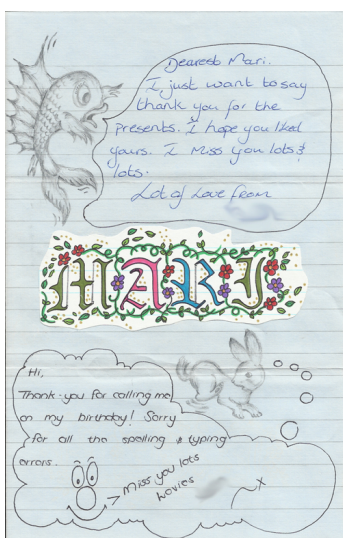 Dearest Mari.
I just want to say
thank you for the
presents. I hope you liked
yours. I miss you lots &
lots.
Lot of Love from
MARI
Hi,
Thank-you for calling me
on my birthday! Sorry
for all the spelling & typing
errors.
Miss you lots
x